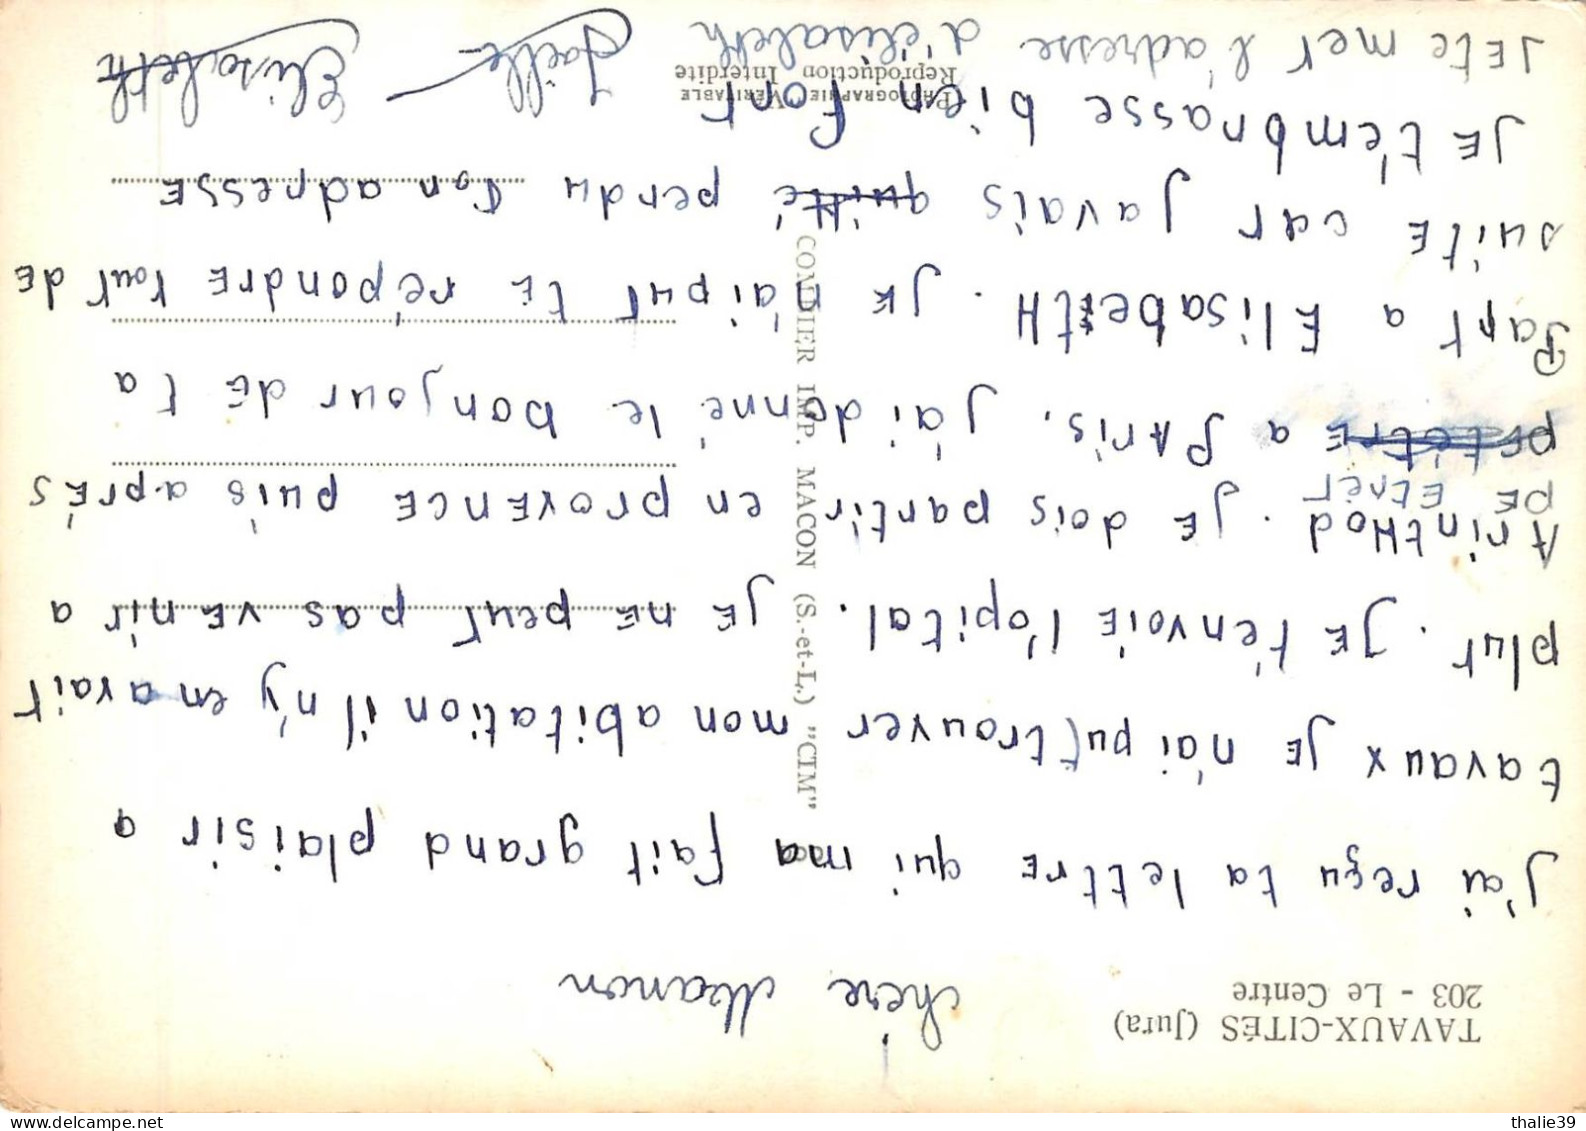 TAVAUX-CITÉS (Jura)
203 - Le Centre
chère Manon
j'ai reçu ta lettrE qui ma fait grand plaisir a
tavaux jE n'ai pu trouver mon abitation il n'y en avait
plut. jE t'envoie l'opital. jE nE peut pas vEnir a
ArintHod. jE dois partir en provEncE puis aprÉs
pE EtrEr
a PAris. j'ai donné le bonjour dE ta
Part a ElisabeEtH. jE n'ai put tE répondrE tout dE
suitE car javais quitté perdu ton adresse
JE t'embrasse bien fort
JEte met l'adresse d'élisabeth
Joëlle Elisabeth
COMBIER IMP. MACON (S.-et-L.) "CIM"
PHOTOGRAPHIE VÉRITABLE
Reproduction Interdite
thalie39